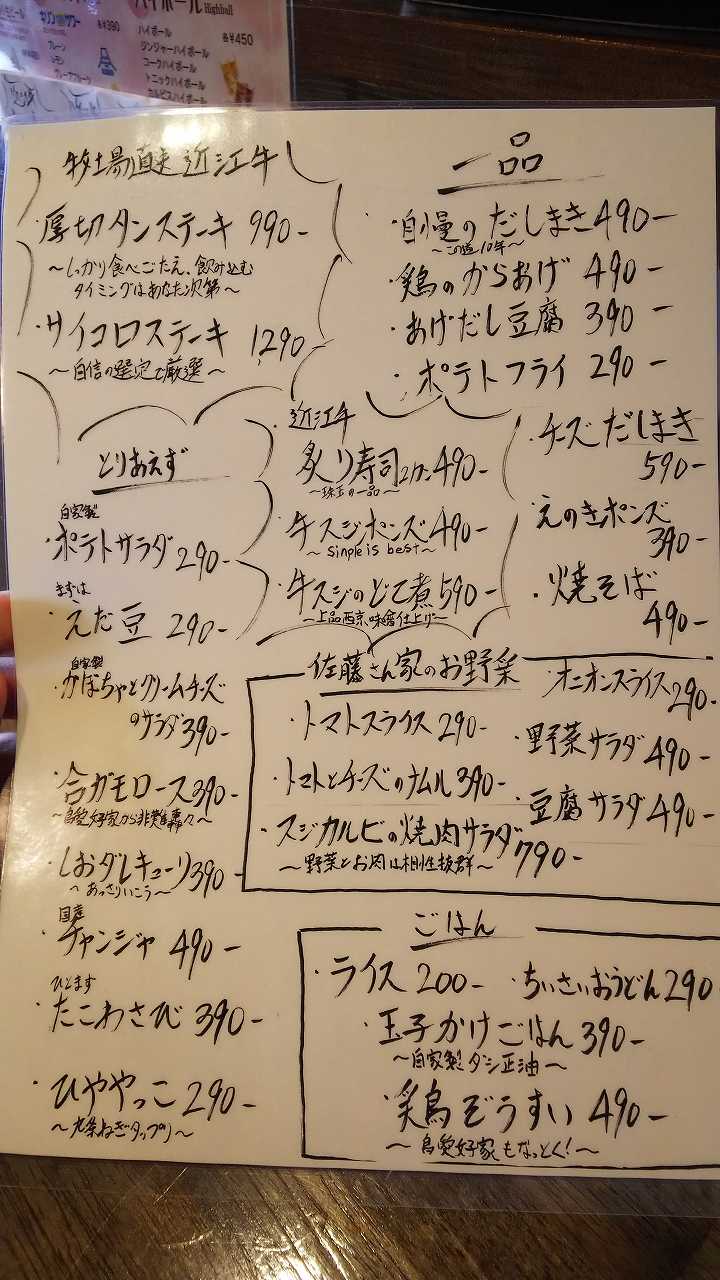 キリンサワー 各¥390
プレーン
レモン
グレープフルーツ
ハイボール Highball
各¥450
ハイボール
ジンジャーハイボール
コークハイボール
トニックハイボール
カルピスハイボール
牧場直送 近江牛
・厚切タンステーキ 990-
～しっかり食べごたえ、飲み込む
タイミングはあなた次第～
・サイコロステーキ 1,290-
～自信の選定で厳選～
一品
・自慢の だしまき 490-
～この道10年～
・鶏のからあげ 490-
・あげだし豆腐 390-
・ポテトフライ 290-
・チーズだしまき
590-
・えのきポンズ
390-
・焼そば
490-
近江牛
・炙り寿司 2カン 490-
～珠玉の一品～
・牛スジポンズ 490-
～Sinple is best～
・牛スジのどて煮 590-
～上品西京味噌仕上げ～
とりあえず
自家製
・ポテトサラダ 290-
まずは
・えだ豆 290-
自家製
・かぼちゃとクリームチーズ
のサラダ 390-
・合ガモロース 390-
～鳥愛好家から非難轟々～
・しおダレキューリ 390-
～あっさりいこう～
国産
・チャンジャ 490-
ひとまず
・たこわさび 390-
・ひややっこ 290-
～九条ねぎタップリ～
佐藤さん家のお野菜
・トマトスライス 290-
・トマトとチーズのナムル 390-
・スジカルビの焼肉サラダ 790-
～野菜とお肉は相性抜群～
・オニオンスライス 290-
・野菜サラダ 490-
・豆腐サラダ 490-
ごはん
・ライス 200-
・ちいさいおうどん 290
・玉子かけごはん 390-
～自家製ダシ正油～
・鶏ぞうすい 490-
～鳥愛好家もなっとく!～